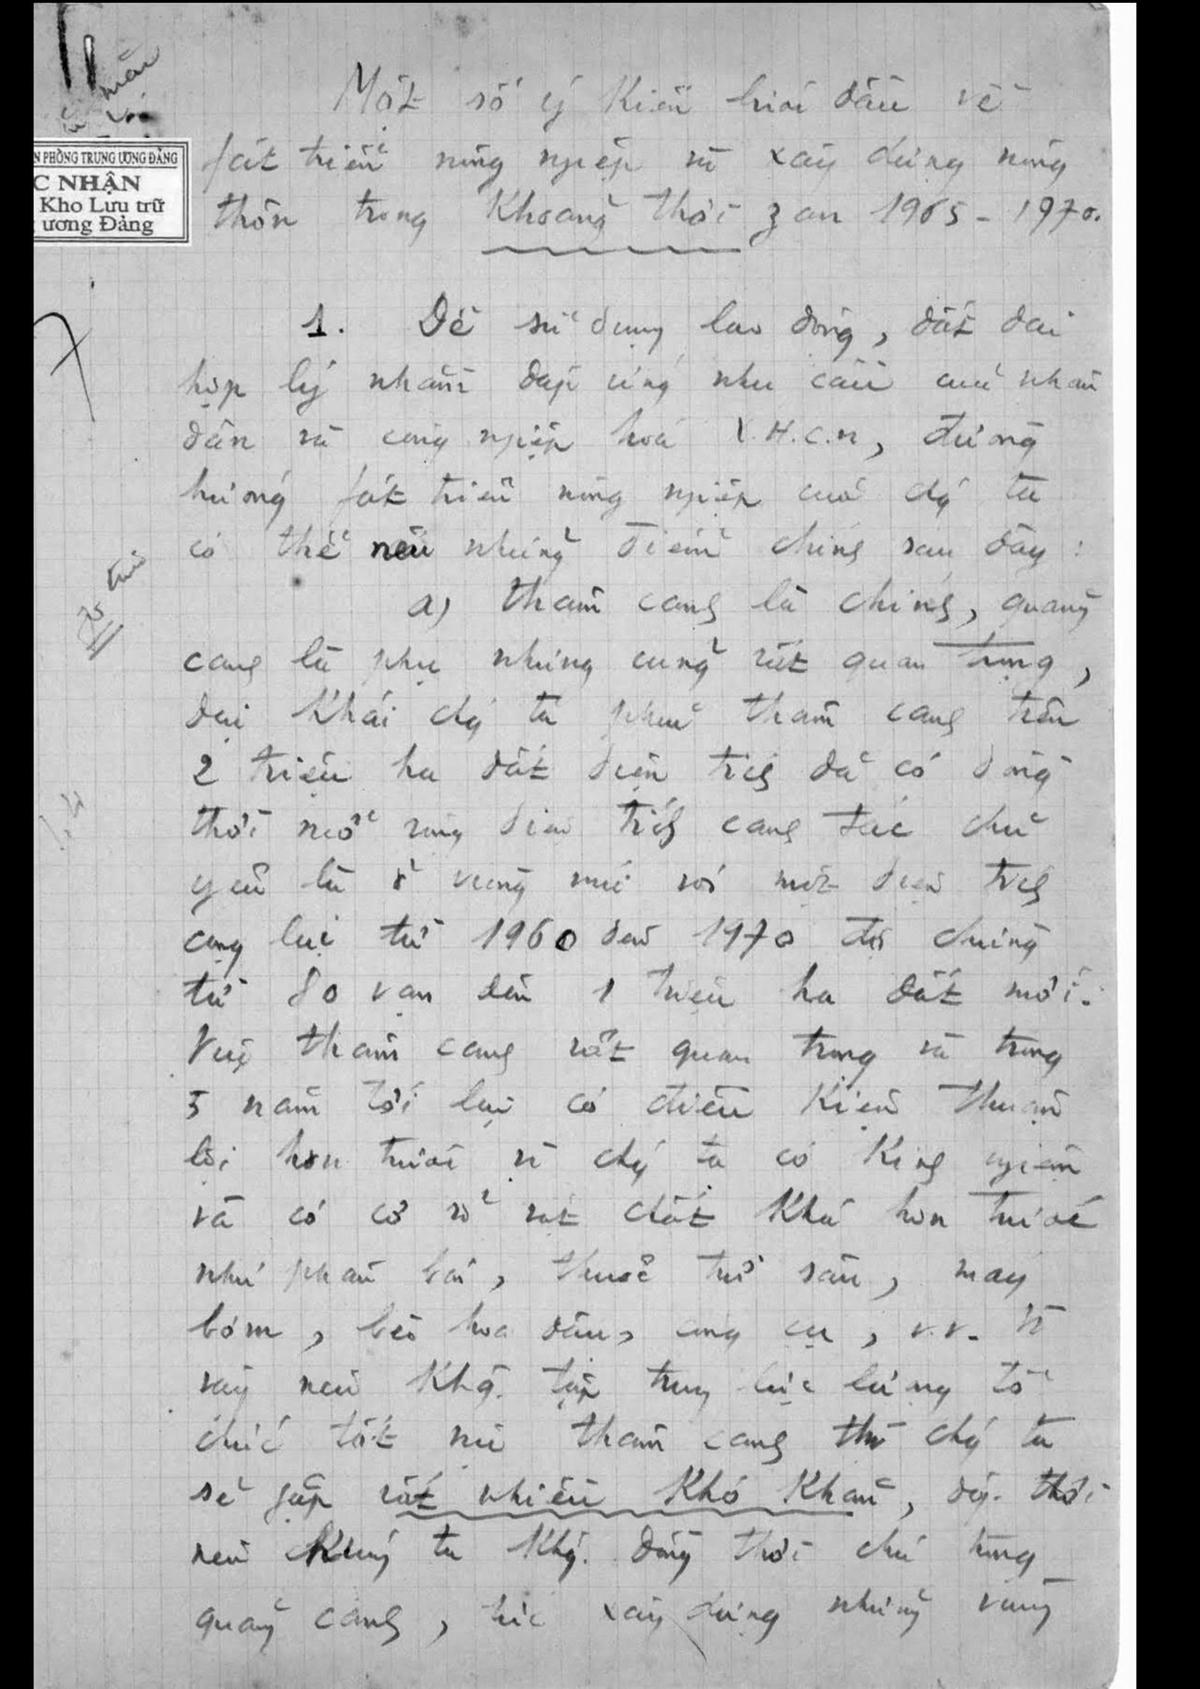 Một số ý kiến bước đầu về
fát triển nông ngiệp và xây dựng nông
thôn trong khoảng thời zan 1965 - 1970.
N PHÒNG TRUNG ƯƠNG ĐẢNG
C NHẬN
Kho Lưu trữ
ương Đảng
1. Để sử dụng lao động, đất đai
hợp lý nhằm đáp ứng nhu cầu của nhân
dân và công ngiệp hoá X.H.C.N, đường
hướng fát triển nông ngiệp của chg ta
có thể nêu những điểm chính sau đây:
a) thâm canh là chính, quảng
canh là phụ nhưng cũng rất quan trọng,
đại khái chg ta phải thâm canh trên
2 triệu ha đất diện tích đã có đồng
thời mở rộng diện tích canh tác chủ
yếu là ở vùng núi với một diện tích
cộng lại từ 1960 đến 1970 độ chừng
từ 80 vạn đến 1 triệu ha đất mới.
Việc thâm canh rất quan trọng và trong
5 năm tới lại có điều kiện thuận
lợi hơn trước vì chg ta có kinh ngiệm
và có cơ sở vật chất khá hơn trước
như phân bón, thuốc trừ sâu, máy
bơm, bèo hoa dâu, công cụ, v.v. Vì
vậy nếu khg. tập trung lực lượng tổ
chức tốt việc thâm canh thì chg ta
sẽ gặp rất nhiều khó khăn, đg. thời
nếu chúng ta khg. đồng thời chú trọng
quảng canh, tức xây dựng những vùng